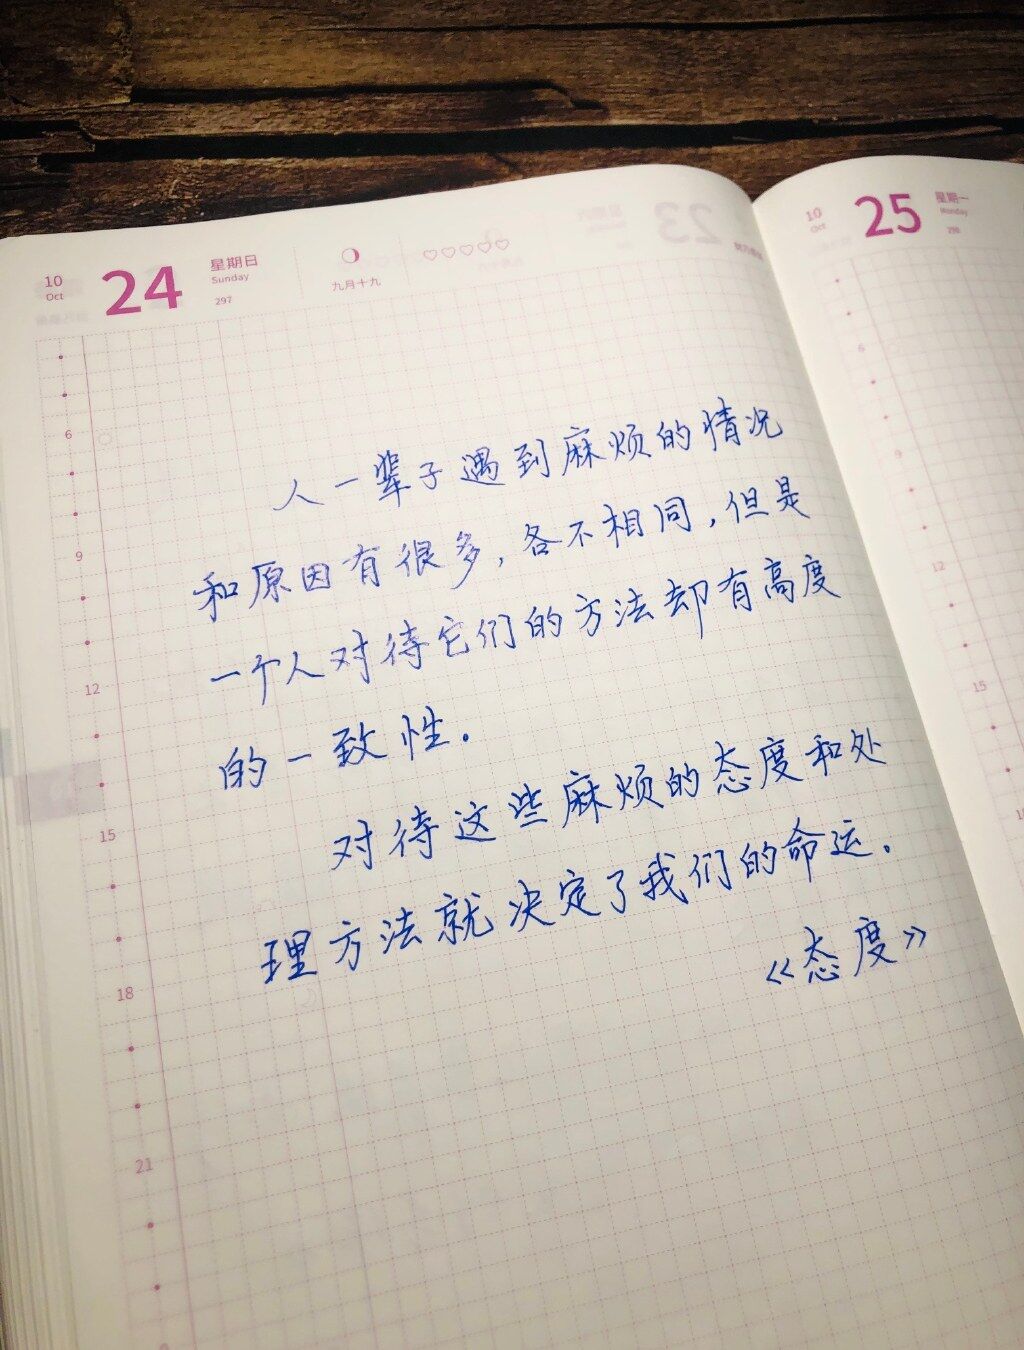 10
Oct
24
星期日
Sunday
297
九月十九
人一辈子遇到麻烦的情况
和原因有很多,各不相同,但是
一个人对待它们的方法却有高度
的一致性.
对待这些麻烦的态度和处
理方法就决定了我们的命运.
《态度》
6
9
12
15
18
21
23
10
Oct
25
星期一
Monday
298
6
9
12
15